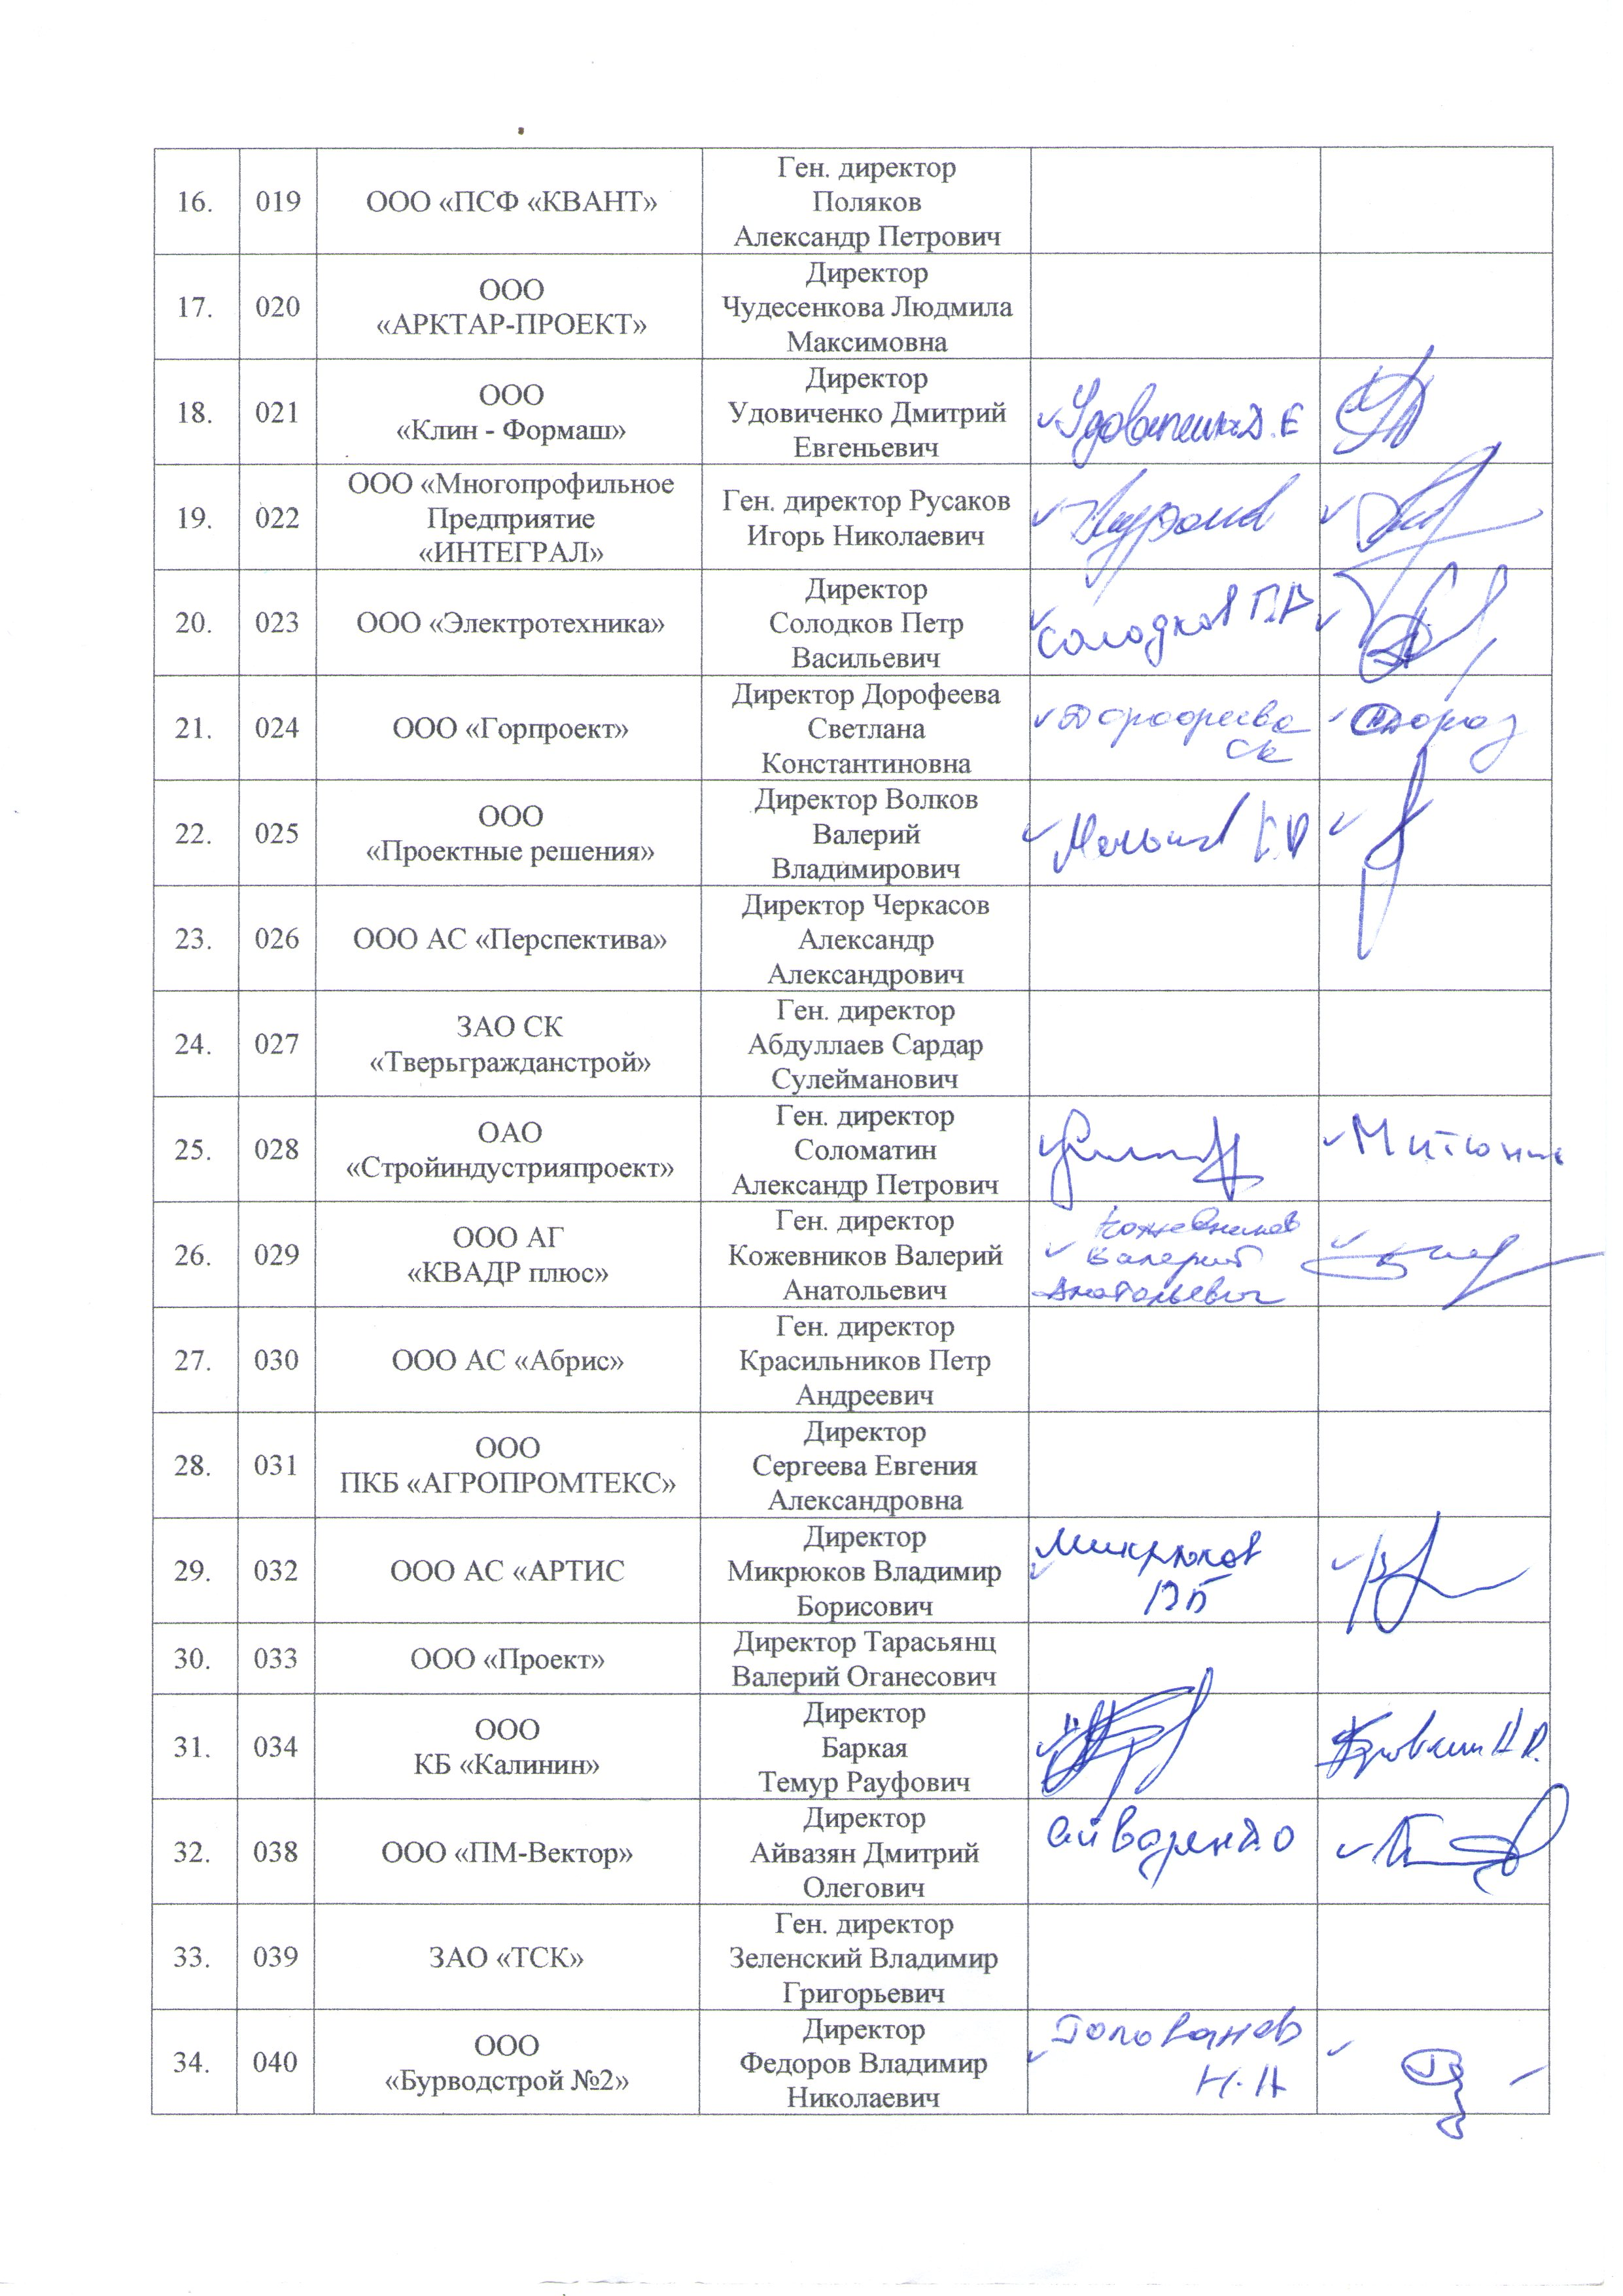 16.
019
ООО «ПСФ «КВАНТ»
Ген. директор
Поляков
Александр Петрович
17.
020
ООО
«АРКТАР-ПРОЕКТ»
Директор
Чудесенкова Людмила
Максимовна
18.
021
ООО
«Клин - Формаш»
Директор
Удовиченко Дмитрий
Евгеньевич
Удовиченко Д.Е
19.
022
ООО «Многопрофильное
Предприятие
«ИНТЕГРАЛ»
Ген. директор Русаков
Игорь Николаевич
20.
023
ООО «Электротехника»
Директор
Солодков Петр
Васильевич
Солодков П.В
21.
024
ООО «Горпроект»
Директор Дорофеева
Светлана
Константиновна
Дорофеева
СК
22.
025
ООО
«Проектные решения»
Директор Волков
Валерий
Владимирович
23.
026
ООО АС «Перспектива»
Директор Черкасов
Александр
Александрович
24.
027
ЗАО СК
«Тверьгражданстрой»
Ген. директор
Абдуллаев Сардар
Сулейманович
25.
028
ОАО
«Стройиндустрияпроект»
Ген. директор
Соломатин
Александр Петрович
26.
029
ООО АГ
«КВАДР плюс»
Ген. директор
Кожевников Валерий
Анатольевич
Кожевников
Валерий
Анатольевич
27.
030
ООО АС «Абрис»
Ген. директор
Красильников Петр
Андреевич
28.
031
ООО
ПКБ «АГРОПРОМТЕКС»
Директор
Сергеева Евгения
Александровна
29.
032
ООО АС «АРТИС
Директор
Микрюков Владимир
Борисович
Микрюков
ВБ
30.
033
ООО «Проект»
Директор Тарасьянц
Валерий Оганесович
31.
034
ООО
КБ «Калинин»
Директор
Баркая
Темур Рауфович
32.
038
ООО «ПМ-Вектор»
Директор
Айвазян Дмитрий
Олегович
Айвазян Д.О
33.
039
ЗАО «ТСК»
Ген. директор
Зеленский Владимир
Григорьевич
34.
040
ООО
«Бурводстрой №2»
Директор
Федоров Владимир
Николаевич
Голованов
Н.Н